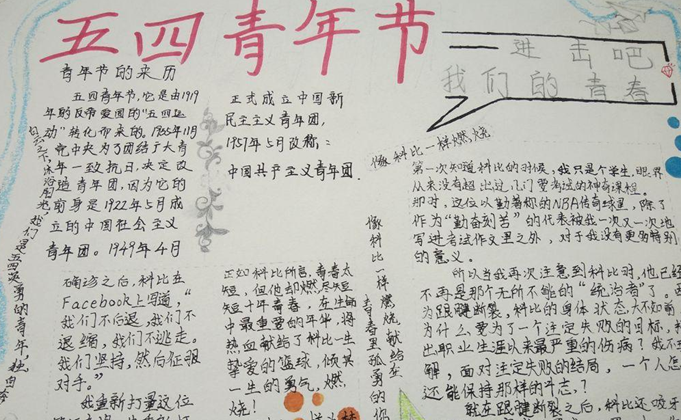 五四青年节
进击吧
我们的青春
青年节的来历
五四青年节,它是由1919
年的反帝爱国的"五四运
动"转化而来的,1935年11月
党中央为了团结广大青
年一致抗日,决定改
造青年团,因为它的
前身是1922年5月成
立的中国社会主义
青年团。1949年4月
正式成立中国新
民主主义青年团,
1957年5月改称:
中国共产主义青年团.
像科比一样燃烧
第一次知道科比的时候,我只是个学生,眼界
从来没有超出过几门要考试的神奇课程。
那时,这位以勤奋称的NBA传奇球星,除了
作为"勤奋刻苦"的代表被我一次又一次地
写进考试作文里之外,对于我没有更多特别
的意义。
所以当我再次注意到科比时,他已经
不再是那个无所不能的"统治者"了。因
为跟腱断裂,科比的身体状态大不如前
为什么要为了一个注定失败的目标,
出职业生涯以来最严重的伤病?我不
解,面对注定失败的结局,一个人怎
还能保持那样的斗志?
就在跟腱断裂之后,科比还咬牙
确诊之后,科比在
Facebook上写道,"
我们不后退,我们不
退缩,我们不逃走。
我们坚持,然后征服
对手。"
我重新打量这位
正如科比所言,青春太
短,但他却燃尽短
短十年青春,在生命
中最重要的年华,将
热血献给了科比一生
挚爱的篮球,倾其
一生的勇气,燃
烧!
像科比一样燃烧
青春献给
孤勇的你